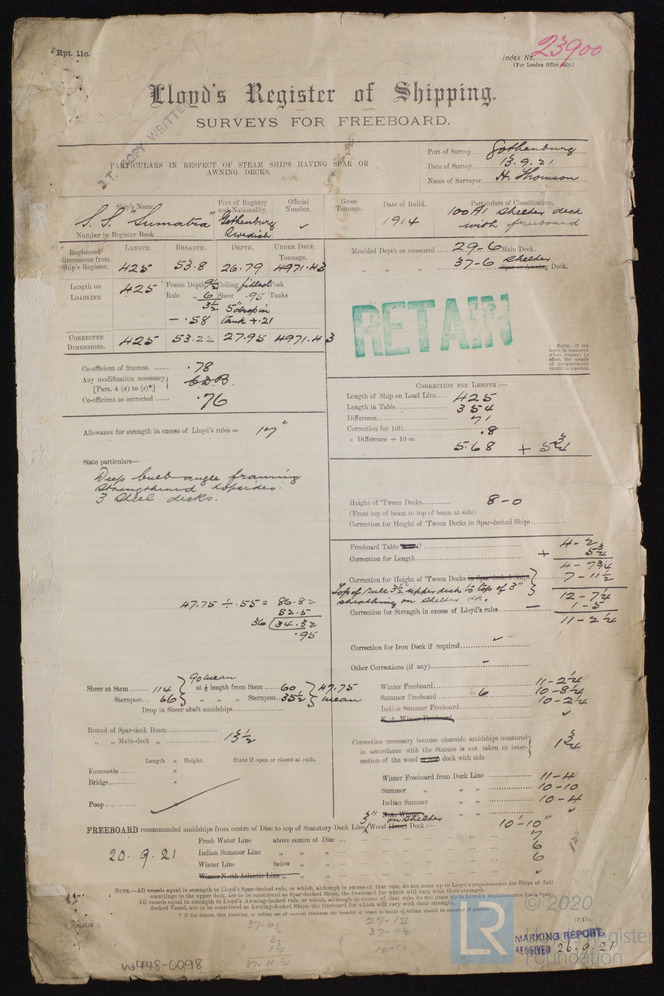 Rpt. 11c.
Index No. 23900
(For London Office only.)
Lloyd's Register of Shipping.
SURVEYS FOR FREEBOARD.
COPY WRITTEN
PARTICULARS IN RESPECT OF STEAM SHIPS HAVING SPAR OR
AWNING DECKS.
Port of Survey Gothenburg
Date of Survey 13.9.21
Name of Surveyor H. Thomson
Ship's Name. Port of Registry and Nationality. Official Number. Gross Tonnage. Date of Build. Particulars of Classification.
S.S. "Sumatra" Gothenburg Swedish 1914 100A1 Shelter deck with freeboard
Number in Register Book
Registered dimensions from Ship's Register. LENGTH. BREADTH. DEPTH. UNDER DECK TONNAGE.
425 53.8 26.79 4971.43
Moulded Depth as measured 29-6 Main Deck.
37-6 Shelter Deck.
Length on LOADLINE 425 Frame Depth 9½ Ceiling fitted Peak
Rule 6 Sheer .95 Tanks
3½ 5" drop in
- .58 tank + .21
CORRECTED DIMENSIONS. 425 53.22 27.95 4971.43
RETAIN
Co-efficient of fineness .78
Any modification necessary
[Para. 4 (a) to (e)*] CDB
Co-efficient as corrected .76
CORRECTION FOR LENGTH :—
Length of Ship on Load Line 425
Length in Table 354
Difference 71
Correction for 10ft. .8
× Difference ÷ 10 = 5.68 + 5¾
Allowance for strength in excess of Lloyd's rules = 17"
State particulars—
Deep bulb angle framing
Strengthened topsides.
3 Steel decks.
Height of 'Tween Decks 8-0
(From top of beam to top of beam at side)
Correction for Height of 'Tween Decks in Spar-decked Ships
Freeboard Table C 4-2
Correction for Length + 5¾
4-7¾
Correction for Height of 'Tween Decks 7-11½
Top of rule 3½" upper deck to top of 3"
sheathing on shelter dk. 12-7¼
Correction for Strength in excess of Lloyd's rules - 1-5
11-2¼
47.75 ÷ .55 = 86.82
52.5
36 (34.32
.95
Correction for Iron Deck if required
Other Corrections (if any) -
90 mean
Sheer at Stem 114 at ⅛ length from Stem 60 47.75
Sternpost 66 Sternpost 35½ mean
Drop in Sheer abaft amidships
Winter Freeboard 11-2¼
Summer Freeboard 6 10-8¼
Indian Summer Freeboard 10-2¼
N. A. Winter Freeboard
Round of Spar-deck Beam
Main-deck 13½
Correction necessary because clearside amidships measured
in accordance with the Statute is not taken at inter-
section of the wood deck with side 1¾
Length × Height State if open or closed at ends.
Forecastle ×
Bridge ×
Poop
Winter Freeboard from Deck Line 11-4
Summer 10-10
Indian Summer 10-4
N.A. Winter
FREEBOARD recommended amidships from centre of Disc to top of Statutory Deck Line, 3" Wood on Shelter Deck :— 10'-10"
20.9.21
Fresh Water Line above centre of Disc 7
Indian Summer Line 6
Winter Line below 6
Winter North Atlantic Line
NOTE.—All vessels equal in strength to Lloyd's Spar-decked rule, or which, although in excess of that rule, do not come up to Lloyd's requirements for Ships of full
scantlings to the upper deck, are to be considered as Spar-decked Ships, the freeboard for which will vary with their strength.
All vessels equal in strength to Lloyd's Awning-decked rule, or which, although in excess of that rule, do not come up to Lloyd's requirements for a Spar-
decked Vessel, are to be considered as Awning-decked Ships, the freeboard for which will vary with their strength.
MARKING REPORT
RECEIVED 26.9.21
W448-0098
37-11½
LR
© 2020
Lloyd's Register
Foundation